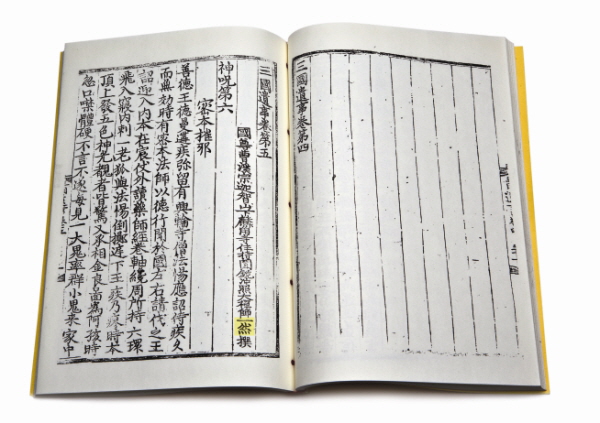 三國遺事卷第四
三國遺事卷第五
國尊曹溪宗迦智山下麟角寺住持圓鏡冲照大禪師一然撰
神呪第六
密本摧邪
善德王德曼遘疾弥留有興輪寺僧法惕應詔侍疾久
而無効時有密本法師以德行聞於國左右請代之王
詔迎入內本在宸仗外讀藥師經卷軸纔周所持六環
飛入寢內刺一老狐與法惕倒擲庭下王疾乃瘳時本
頂上發五色神光覩者皆驚又承相金良圖為阿孩時
忽口噤體硬不言不遂每見一大鬼率群小鬼来家中